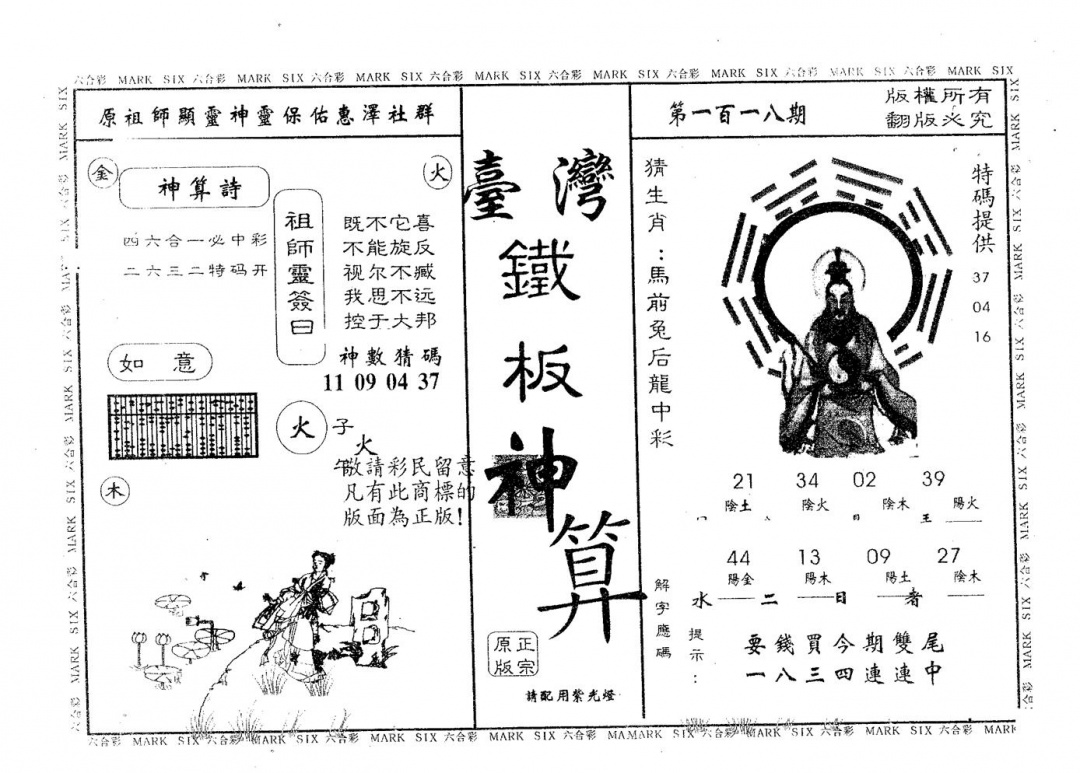 六合彩 MARK SIX 六合彩 MARK SIX 六合彩 MARK SIX 六合彩 MARK SIX 六合彩 MARK SIX 六合彩 MARK SIX 六合彩 MARK SIX 六合彩 MARK SIX
原祖師顯靈神靈保佑惠澤社群
金
火
神算詩
四六合一必中彩
二六三二特码开
祖師靈簽曰
既不它喜
不能旋反
视尔不臧
我思不远
控于大邦
如意
神數猜碼
11 09 04 37
火
子
火
午
敬請彩民留意
凡有此商標的
版面為正版!
木
臺灣
鐵
板
神
算
正宗
原版
請配用紫光燈
第一百一八期
版權所有
翻版必究
猜生肖：馬前兔后龍中彩
特碼提供
37
04
16
21 34 02 39
陰土 陰火 陰木 陽火
44 13 09 27
陽金 陽木 陽土 陰木
解字應碼
水 二 日 者
提示：
要錢買今期雙尾
一八三四連連中
六合彩 MARK SIX 六合彩 MARK SIX 六合彩 MARK SIX 六合彩 MARK SIX 六合彩 MAMARK SIX 六合彩 MARK SIX 六合彩 MARK SIX 六合彩 MARK